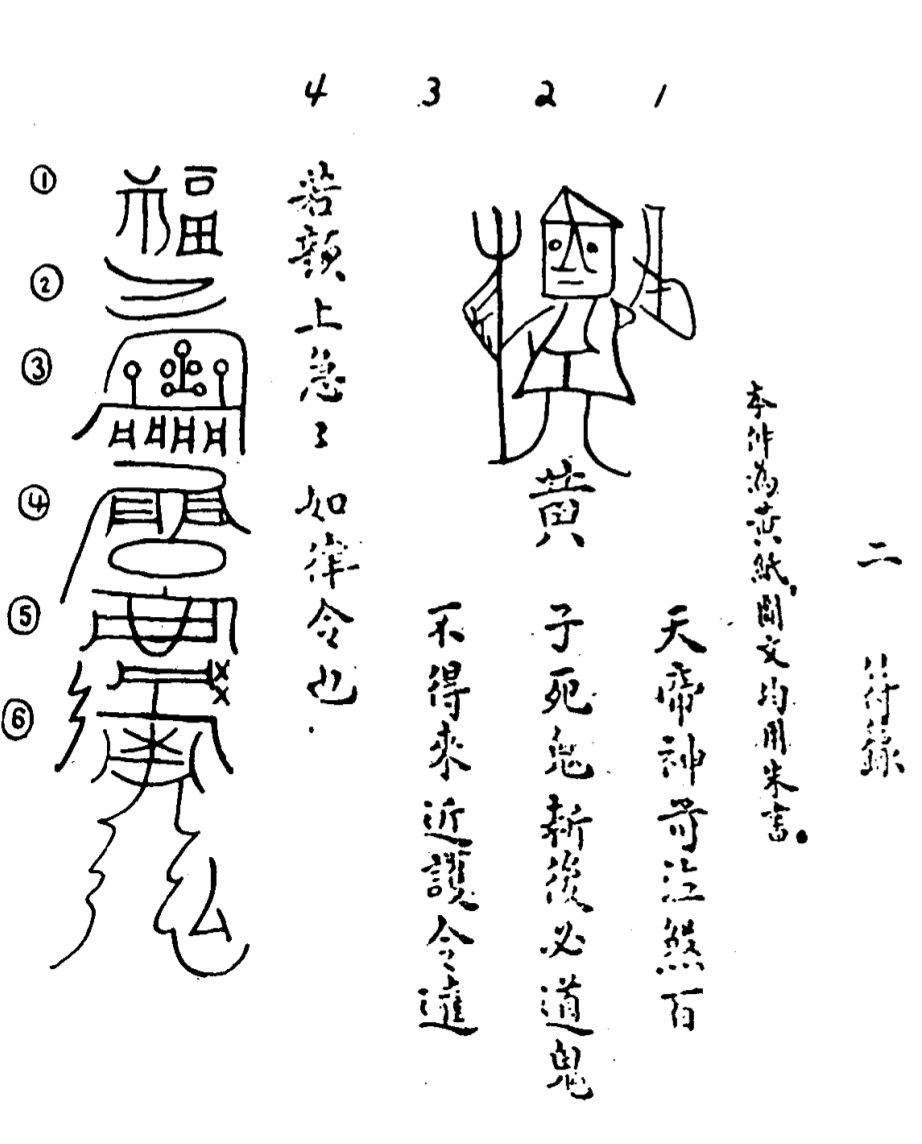 二 符錄
本件為黃紙，圖文均用朱書。
1
天帝神煞百
2
黃
子死鬼斬後必道鬼
3
不得來近護令達
4
若頭上急〻如律令也
①
福
②
③
④
⑤
⑥